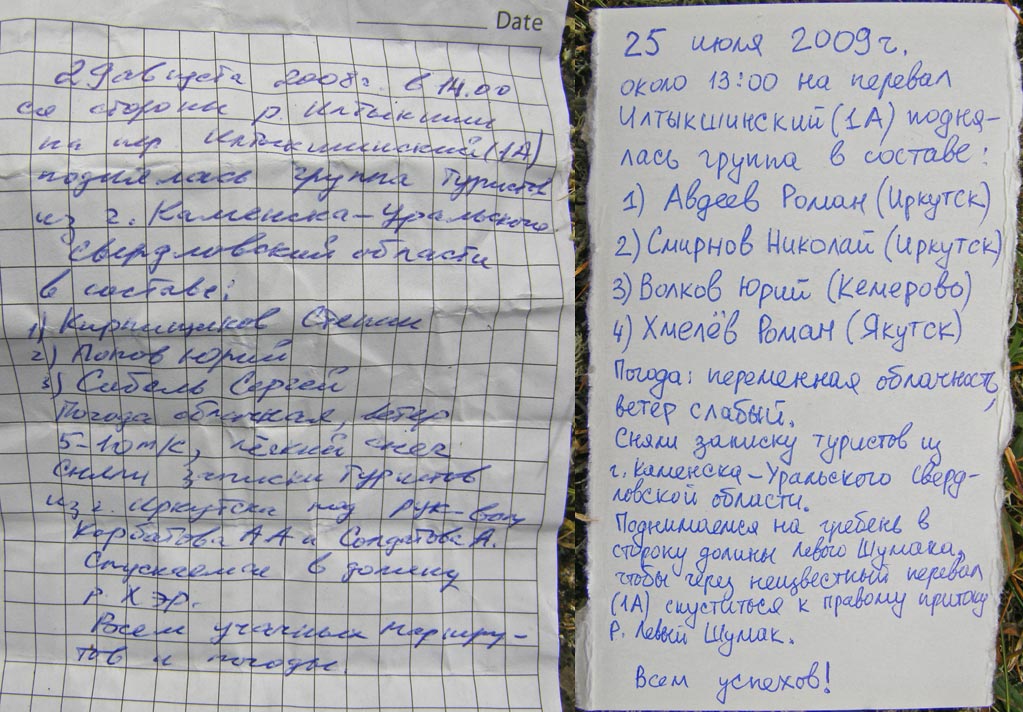 Date
29 августа 2008г. в 14.00
со стороны р. Илтыкшин
на пер. Илтыкшинский (1А)
поднялась группа туристов
из г. Каменска-Уральского
Свердловский области
в составе:
1) Кирпищиков Степан
2) Попов Юрий
3) Сибель Сергей
Погода облачная, ветер
5-10 м/с, лёгкий снег
Сняли записки туристов
из г. Иркутска под рук-вом
Корбатова А А и Солдатова А.
Спускаемся в долину
р. Хэр.
Всем удачных маршру-
тов и погоды.
25 июля 2009 г.
около 13:00 на перевал
Илтыкшинский (1А) подня-
лась группа в составе:
1) Авдеев Роман (Иркутск)
2) Смирнов Николай (Иркутск)
3) Волков Юрий (Кемерово)
4) Хмелёв Роман (Якутск)
Погода: переменная облачность,
ветер слабый.
Сняли записку туристов из
г. Каменска-Уральского Сверд-
ловской области.
Поднимаемся на гребень в
сторону долины левого Шумака,
чтобы через неизвестный перевал
(1А) спуститься к правому притоку
р. Левый Шумак.
Всем успехов!